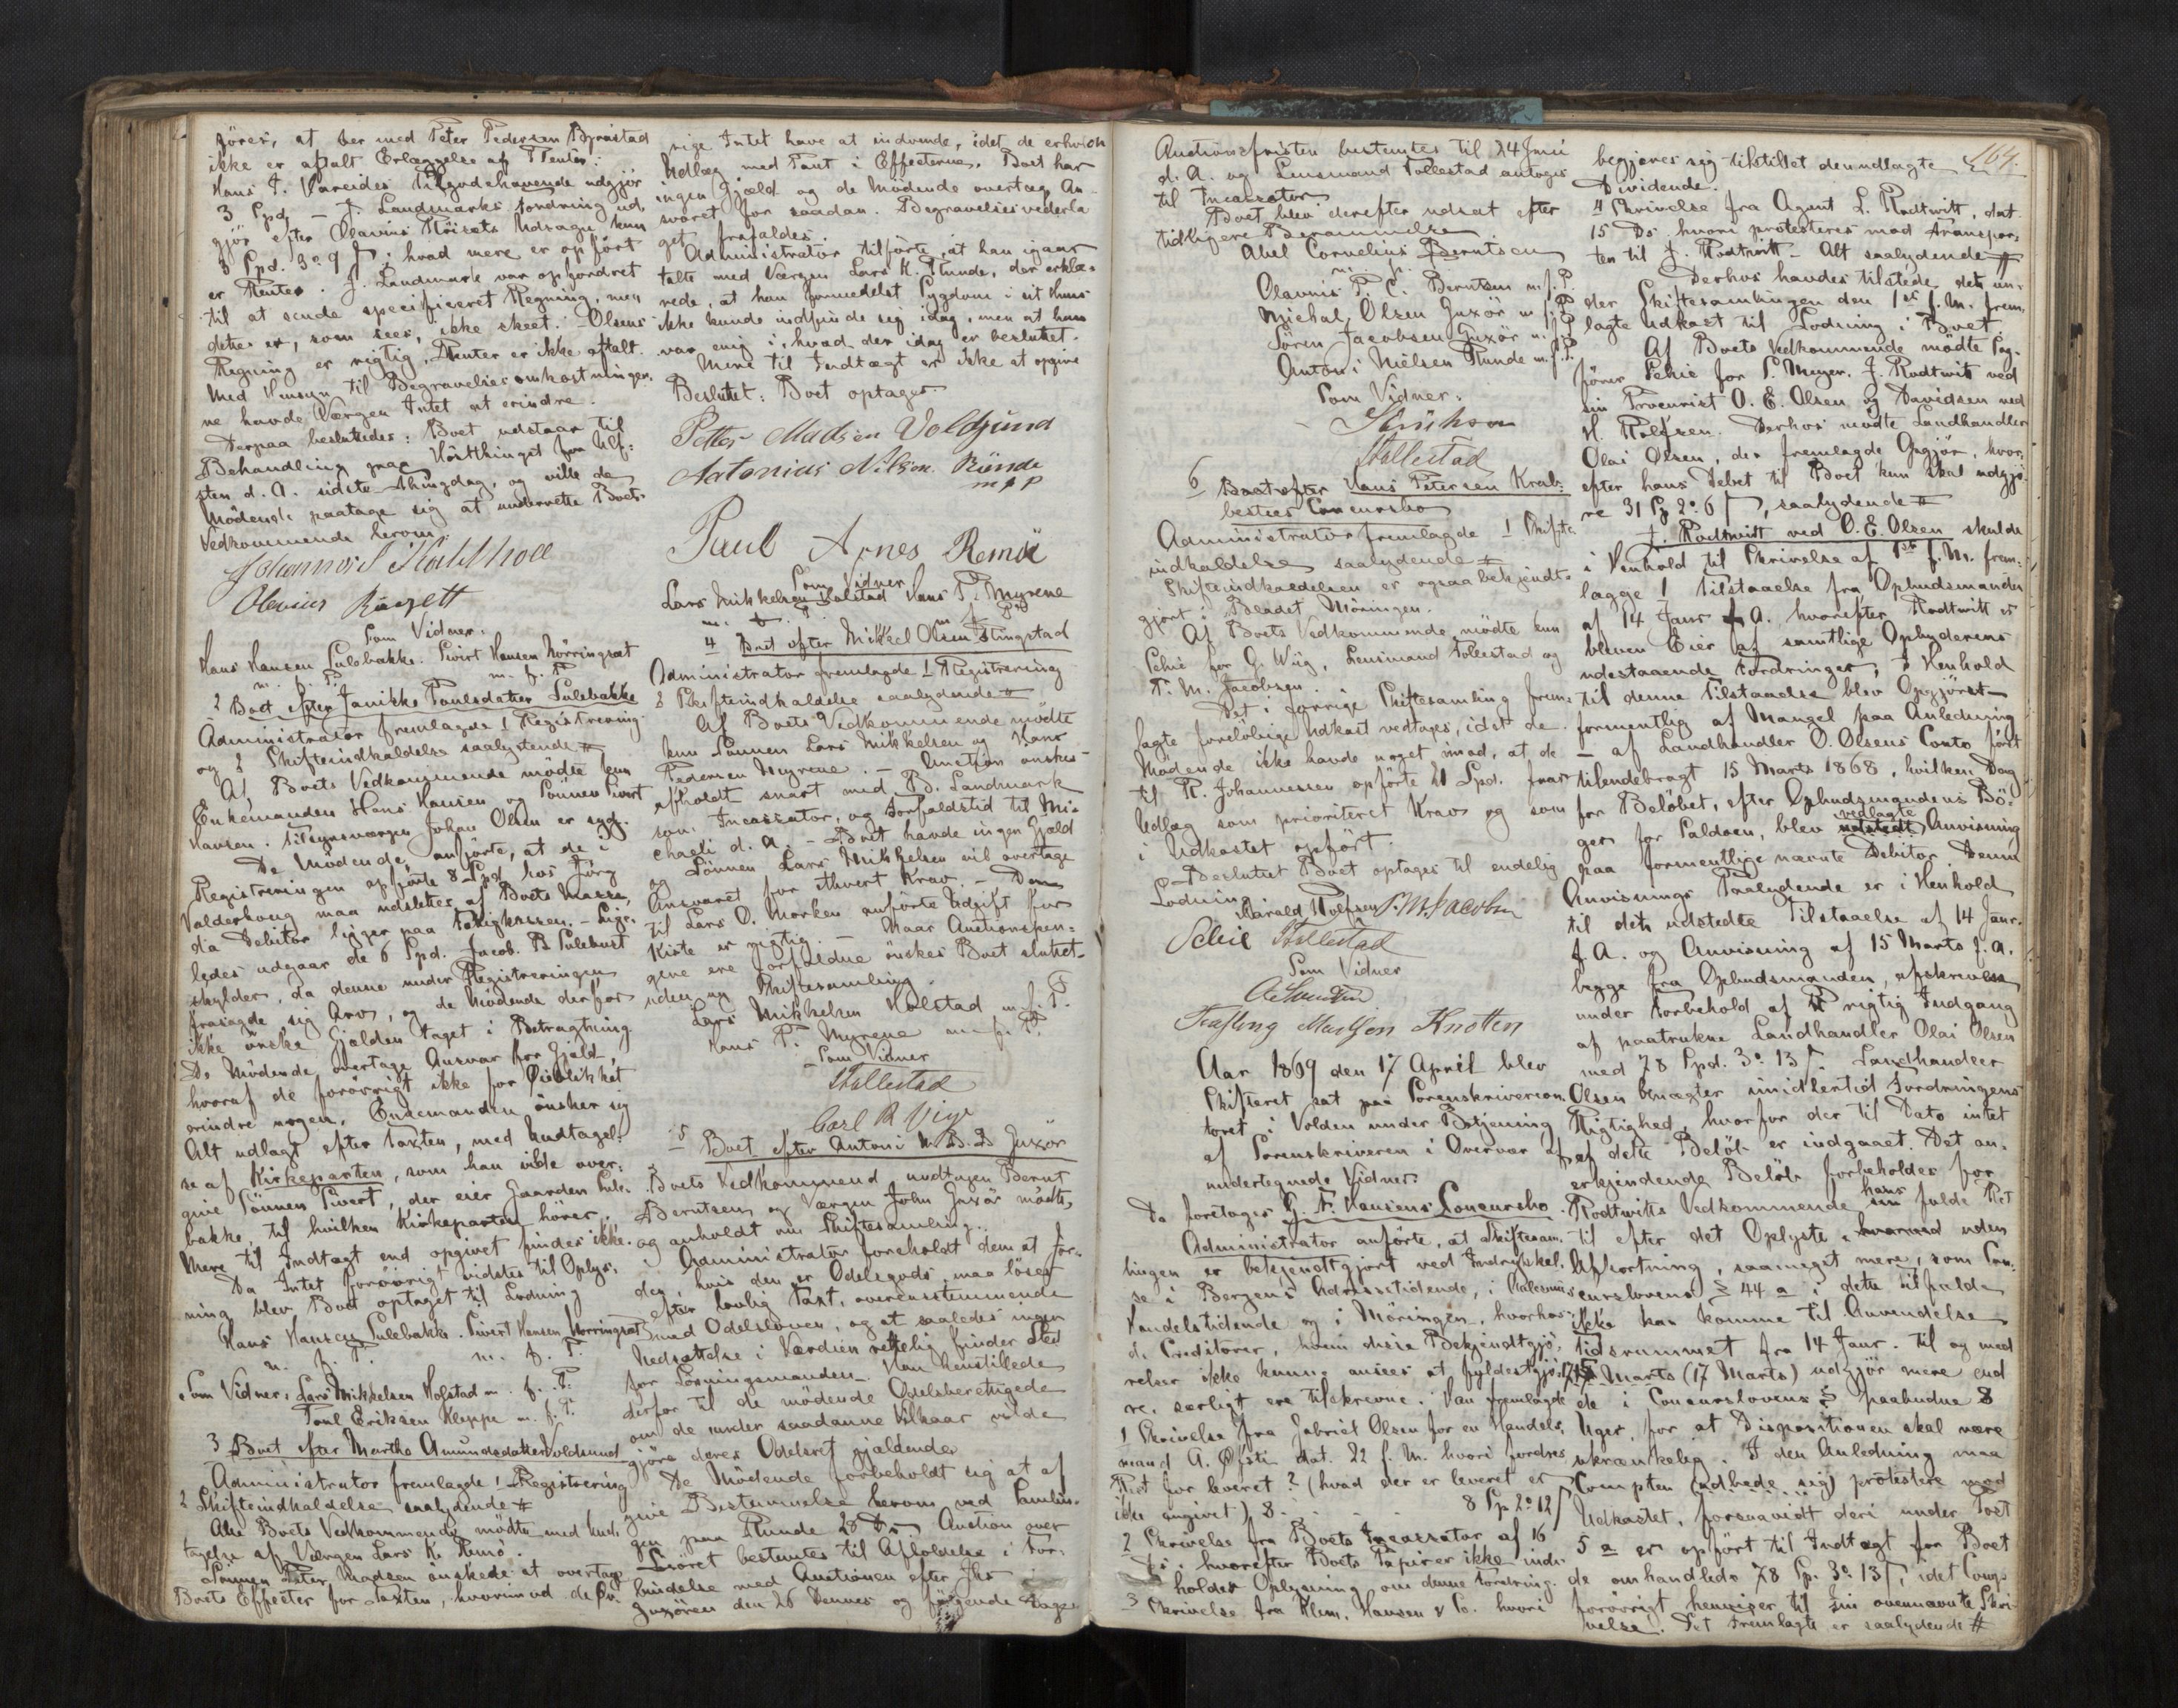 föres, at der med Peter Pedersen Bjrastad
ikke er aftalt Erlæggelse af Renter.
Hans J. Vareides Tilgodehavende udgjör
3 Spd. – J. Landmarks Fordring ud,
gjör efter Olavius Röisets Udsagn kun
3 Spd. 3o 9 ; hvad mere er opfört
er Renter. J. Landmark var opfordret
til at sende specificeret Regning, men
dette er, som sees, ikke skeet. Olsens
Regning er rigtig, Renter er ikke aftalt.
Med Hensyn til Begravelsesomkostningen.
ne havde Værgen Intet at erindre.
Derpaa besluttedes: Boet udstaar til
Behandling paa Hösttinget for Ulf:
sten d. A. sidste Thingdag, og ville de
Mödende paatage sig at underrette Boets
Vedkommende herom.
Olavius Röysett
Som Vidner.
Hans Hansen Sulebakke. Sivert Hansen Nörringsæt
m. f. P. m. f. P.
2 Boet efter Janikke Paulsdatter Sulebakke
Administrator fremlagde 1 Registrering
og 2 Skifteindkaldelse saalydende #
Af Boets Vedkommende mödte kun
Enkemanden Hans Hansen og Sönnen Sivert
Hansen. Tilsynsværgen Johan Olsen er syg.
De Mödende anförte, at de i
Registreringen opförte 8 Spd. hos Jörg
Valderhoug maa udslettes af Boets Masse,
da Debitor ligger paa Fattigkassen. – Lige-
ledes udgaar de 6 Spd. Jacob. B Sulebust
skylder, da denne under Registreringen
frasagde sig Arv, og de Mödende derfor
ikke önske Gjælden taget i Betragtning.
De Mödende overtage Ansvar for Gjæld,
hvoraf de forövrigt ikke for Öieblikket
erindre nogen. Enkemanden önsker sig
Alt udlagt efter Taxten, med Undtagel:
se af Kirkeparten, som han vilde over:
give Sönnen Sivert, der eier Gaarden Sule:
bakke, til hvilken Kirkeparten hörer.
Mere til Indtægt end opgivet findes ikke.
Da Intet forövrigt vidstes til Oplys:
ning blev Boet optaget til Lodning
Hans Hansen Sulebakke. Sivert Hansen Norringsæt
m. f. P. m. f. P.
Som Vidner: Lars Mikkelsen Holstad m. f. P.
Poul Eriksen Kleppe m. f. P.
3 Boet efter Marthe Amundsdatter Voldsund
Administrator fremlagde 1 Registrering
2 Skifteindkaldelse saalydende #
Alle Boets Vedkommende mödte med Und:
tagelse af Værgen Lars K. Remö.
Sönnen Peter Madsen önskede at overtage
Boets Effecter for Taxten, hvorimod de Öv:
rige Intet have at indvende, idet de erholde
Udlæg med Pant i Effecterne. Boet har
ingen Gjæld og de Mödende overtage An-
svaret for saadan. Begravelsesvederla
get frafaldes.
Administrator tilförte, at han igaar
talte med Værgen Lars K. Runde, der erklæ=
rede, at han formedelst Sygdom i sit Huus
ikke kunde indfinde sig idag, men at han
var enig i, hvad der idag er besluttet.
Mere til Indtægt er ikke at opgive
Besluttet: Boet optages
Petter Madsen Voldsund
Antonius Nilsen Runde
m f P
Paul Arnes Remöe
Som Vidner
Lars Mikkelsen Holstad Hans P. Myrene
m. f. P. m f P.
4 Boet efter Mikkel Olsen Tungstad
Administrator fremlagde 1 Registrering
2 Skifteindkaldelse saalydende #
Af Boets Vedkommende mödte
kun Sönnen Lars Mikkelsen og Hans
Pedersen Myrene. – Auction önskes
afholdt snart med B. Landmark
som Incassator, og Forfaldstid til Mi:
chaeli d. A. – Boet havde ingen Gjæld
og Sönnen Lars Mikkelsen vil overtage
Ansvaret for ethvert Krav. – Den
til Lars O. Morken anförte Udgift for
Kiste er rigtig. – Naar Auctionspen:
gene ere forfaldne önskes Boet sluttet
uden ny Skiftesamling.
Lars Mikkelsen Holstad m. f. P.
Hans P. Myrene m. f. P.
Som Vidner
Stellestad
Carl R Vige
5 Boet efter Antoni N. B. D Juxör
Boets Vedkommend undtagen Bernt
Berntsen og Værgen John Juxör mödte,
og anholdt om Skiftesamling.
Administrator foreholdt dem at Jor:
den, hvis den er Odelsgods, maa löses
efter lovlig Taxt, overensstemmende
med Odelsloven, og at saaledes ingen
Nedsættelse i Værdien rettelig finder Sted
for Lösningsmanden. Han henstillede
derfor til de mödende Odelsberettigede
om de under saadanne Vilkaar vilde
gjöre deres Odelsret gjældende
De Mödende forbeholdt sig at af
give Bestemmelse herom ved Samlin-
gen paa Runde 28 Ds. Auction over
Lösöret bestemtes til Afholdelse i For:
bindelse med Auctionen efter Jhs
Juxören den 26 Dennes og fölgende Dage
Auctionsfristen bestemtes til 24 Juni
d. A. og Lensmand Tollestad antoges
til Incassator
Boet blev derefter udsat efter
tidligere Berammelse
Abel Cornelius Berntsen
m. f. P.
Olavius P. C. Berntsen m. f. P.
Michal Olsen Juxör m f. P
Sören Jacobsen Juxör m. f. P
Antoni Nielsen Runde m. f. P.
Som Vidner:
Stellestad
6 Boet efter Hans Petersen Krab:
besties Concursbo
Administrator fremlagde 1 Skifte
indkaldelse saalydende #
Skifteindkaldelsen er ogsaa bekjendt=
gjort i Bladet Möringen.
Af Boets Vedkommende mödte kun
Schie for G. Wiig, Lensmand Tollestad og
P. M. Jacobsen.
Det i forrige Skiftesamling frem:
lagte forelöbige Udkast vedtages, idet de
Mödende ikke havde noget imod, at de
til R. Johannessen opförte 21 Spd. faar
Udlæg som prioriteret Krav og som
i Udkastet opfört.
Besluttet Boet optages til endelig
Lodning
Harald Rolfsen P. M. Jacobsen
Schie Stellestad
Som Vidner
Knotten
Aar 1869 den 17 April blev
Skifteret sat paa Sorenskrivercon-
toret i Volden under Betjening
af Sorenskriveren i Overvær af
undertegnede Vidner.
Da foretages G. F. Hansens Concursbo.
Administrator anförte, at Skiftesam-
lingen er bekjendtgjort ved Indrykkel,
se i Bergens Adressetidende, i Aalesunds
Handelstidende og i Möringen, hvorhos
de Creditorer, hvem disse Bekjendtgjö,
relser ikke kunne ansees at fyldestgjö,
re, særligt ere tilskrevne. Han fremlagde
1 Skrivelse fra Gabriel Olsen for en Handels,
mand A. Öfsti dat. 22 f. M. hvori fordres
Ret for leveret ? (hvad der er leveret er
ikke angivet) 8. – 8 Sp 2o 12
2 Skrivelse fra Boets Incassator af 16
Ds. hvorefter Boets Papirer ikke inde
holder Oplysning om denne Fordring.
3 Skrivelse fra Klem. Hansen & Co. hvori
164.
begjæres sig tilstillet den udlagte
Dividende.
4 Skrivelse fra Agent L. Rodtwitt, dat
15 Ds. hvori protesteres mod Transpor,
ten til J. Rodtwitt – Alt saalydende #
Derhos havdes tilstede det un-
der Skiftesamlingen den 1ste f. M. frem,
lagte Udkast til Lodning i Boet.
Af Boets Vedkommende mödte Sag-
förer Schie for S. Meyer. J. Rodtwitt ved
sin Procurist O. E. Olsen og Davidsen ved
H. Rolfsen. Derhos mödte Landhandler
Olai Olsen, der fremlagde Opgjör, hvor,
efter hans Debet til Boet kun skal udgjö-
re 31 Sp 2o 6 , saalydende #
J. Rodtwitt ved O. E. Olsen skulde
i Henhold til Skrivelse af 1ste f. M. frem:
lægge 1 Tilstaaelse fra Opbudsmanden
af 14 Janr f. A. hvorefter Rodtwitt er
bleven Eier af samtlige Opbyderens
udestaaende Fordringer; i Henhold
til denne Tilstaaelse blev Opgjöret
formentlig af Mangel paa Anledning
– af Landhandler O. Olsens Conto först
tilendebragt 15 Marts 1868, hvilken Dag
for Belöbet, efter Opbudsmandens Bö:
ger for Saldoen, blev udstedt vedlagte Anvisning
paa formentlige nævnte Debitor. Denne
Anvisnings Paalydende er i Henhold
til den udstedte Tilstaaelse af 14 Janr.
f. A. og Anvisning af 15 Marts f. A.
begge fra Opbudsmanden, afskreven
under Forbehold af rigtig Indgang
af paatrukne Landhandler Olai Olsen
med 78 Spd. 3o 13 . Landhandler
Olsen benægter imidlertid Fordringens
Rigtighed, hvorfor der til Dato intet
af dette Belöb er indgaaet. Det an-
erkjendende Belöb forbeholdes for
Rodtwitts Vedkommende sin hans fulde Ret
til efter det Oplyste hvormed uden
Afkortning, saameget mere, som Con-
curslovens § 44 a i dette Tilfælde
ikke kan komme til Anvendelse
Tidsrummet fra 14 Janr. til og med
15 Marts (17 Marts) udgjör mere end
de i Concurslovens § paabudne 8
Uger, for at Dispositionen skal være
ukrænkelig. I den Anledning maa
Compten (udbede sig) protestere mod
Udkastet, forsaavidt deri under Post
5 a er opfört til Indtægt for Boet
de omhandlede 78 Sp. 3o 13 , idet Comp.
forövrigt henviser til sin ovennævnte Skri-
velse. Det Fremlagte er saalydende #